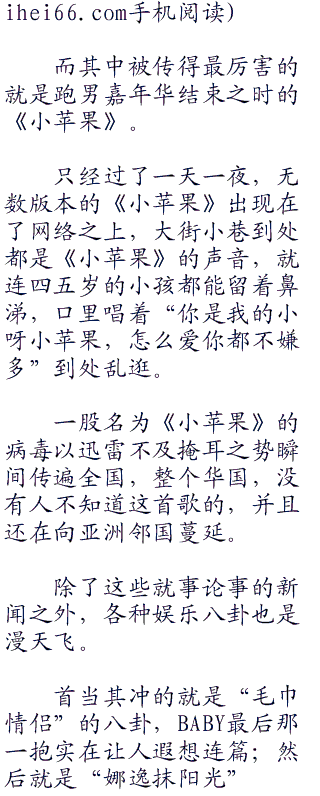 ihei66.com手机阅读)
而其中被传得最厉害的
就是跑男嘉年华结束之时的
《小苹果》。
只经过了一天一夜，无
数版本的《小苹果》出现在
了网络之上，大街小巷到处
都是《小苹果》的声音，就
连四五岁的小孩都能留着鼻
涕，口里唱着“你是我的小
呀小苹果，怎么爱你都不嫌
多”到处乱逛。
一股名为《小苹果》的
病毒以迅雷不及掩耳之势瞬
间传遍全国，整个华国，没
有人不知道这首歌的，并且
还在向亚洲邻国蔓延。
除了这些就事论事的新
闻之外，各种娱乐八卦也是
漫天飞。
首当其冲的就是“毛巾
情侣”的八卦，BABY最后那
一抱实在让人遐想连篇；然
后就是“娜逸抹阳光”